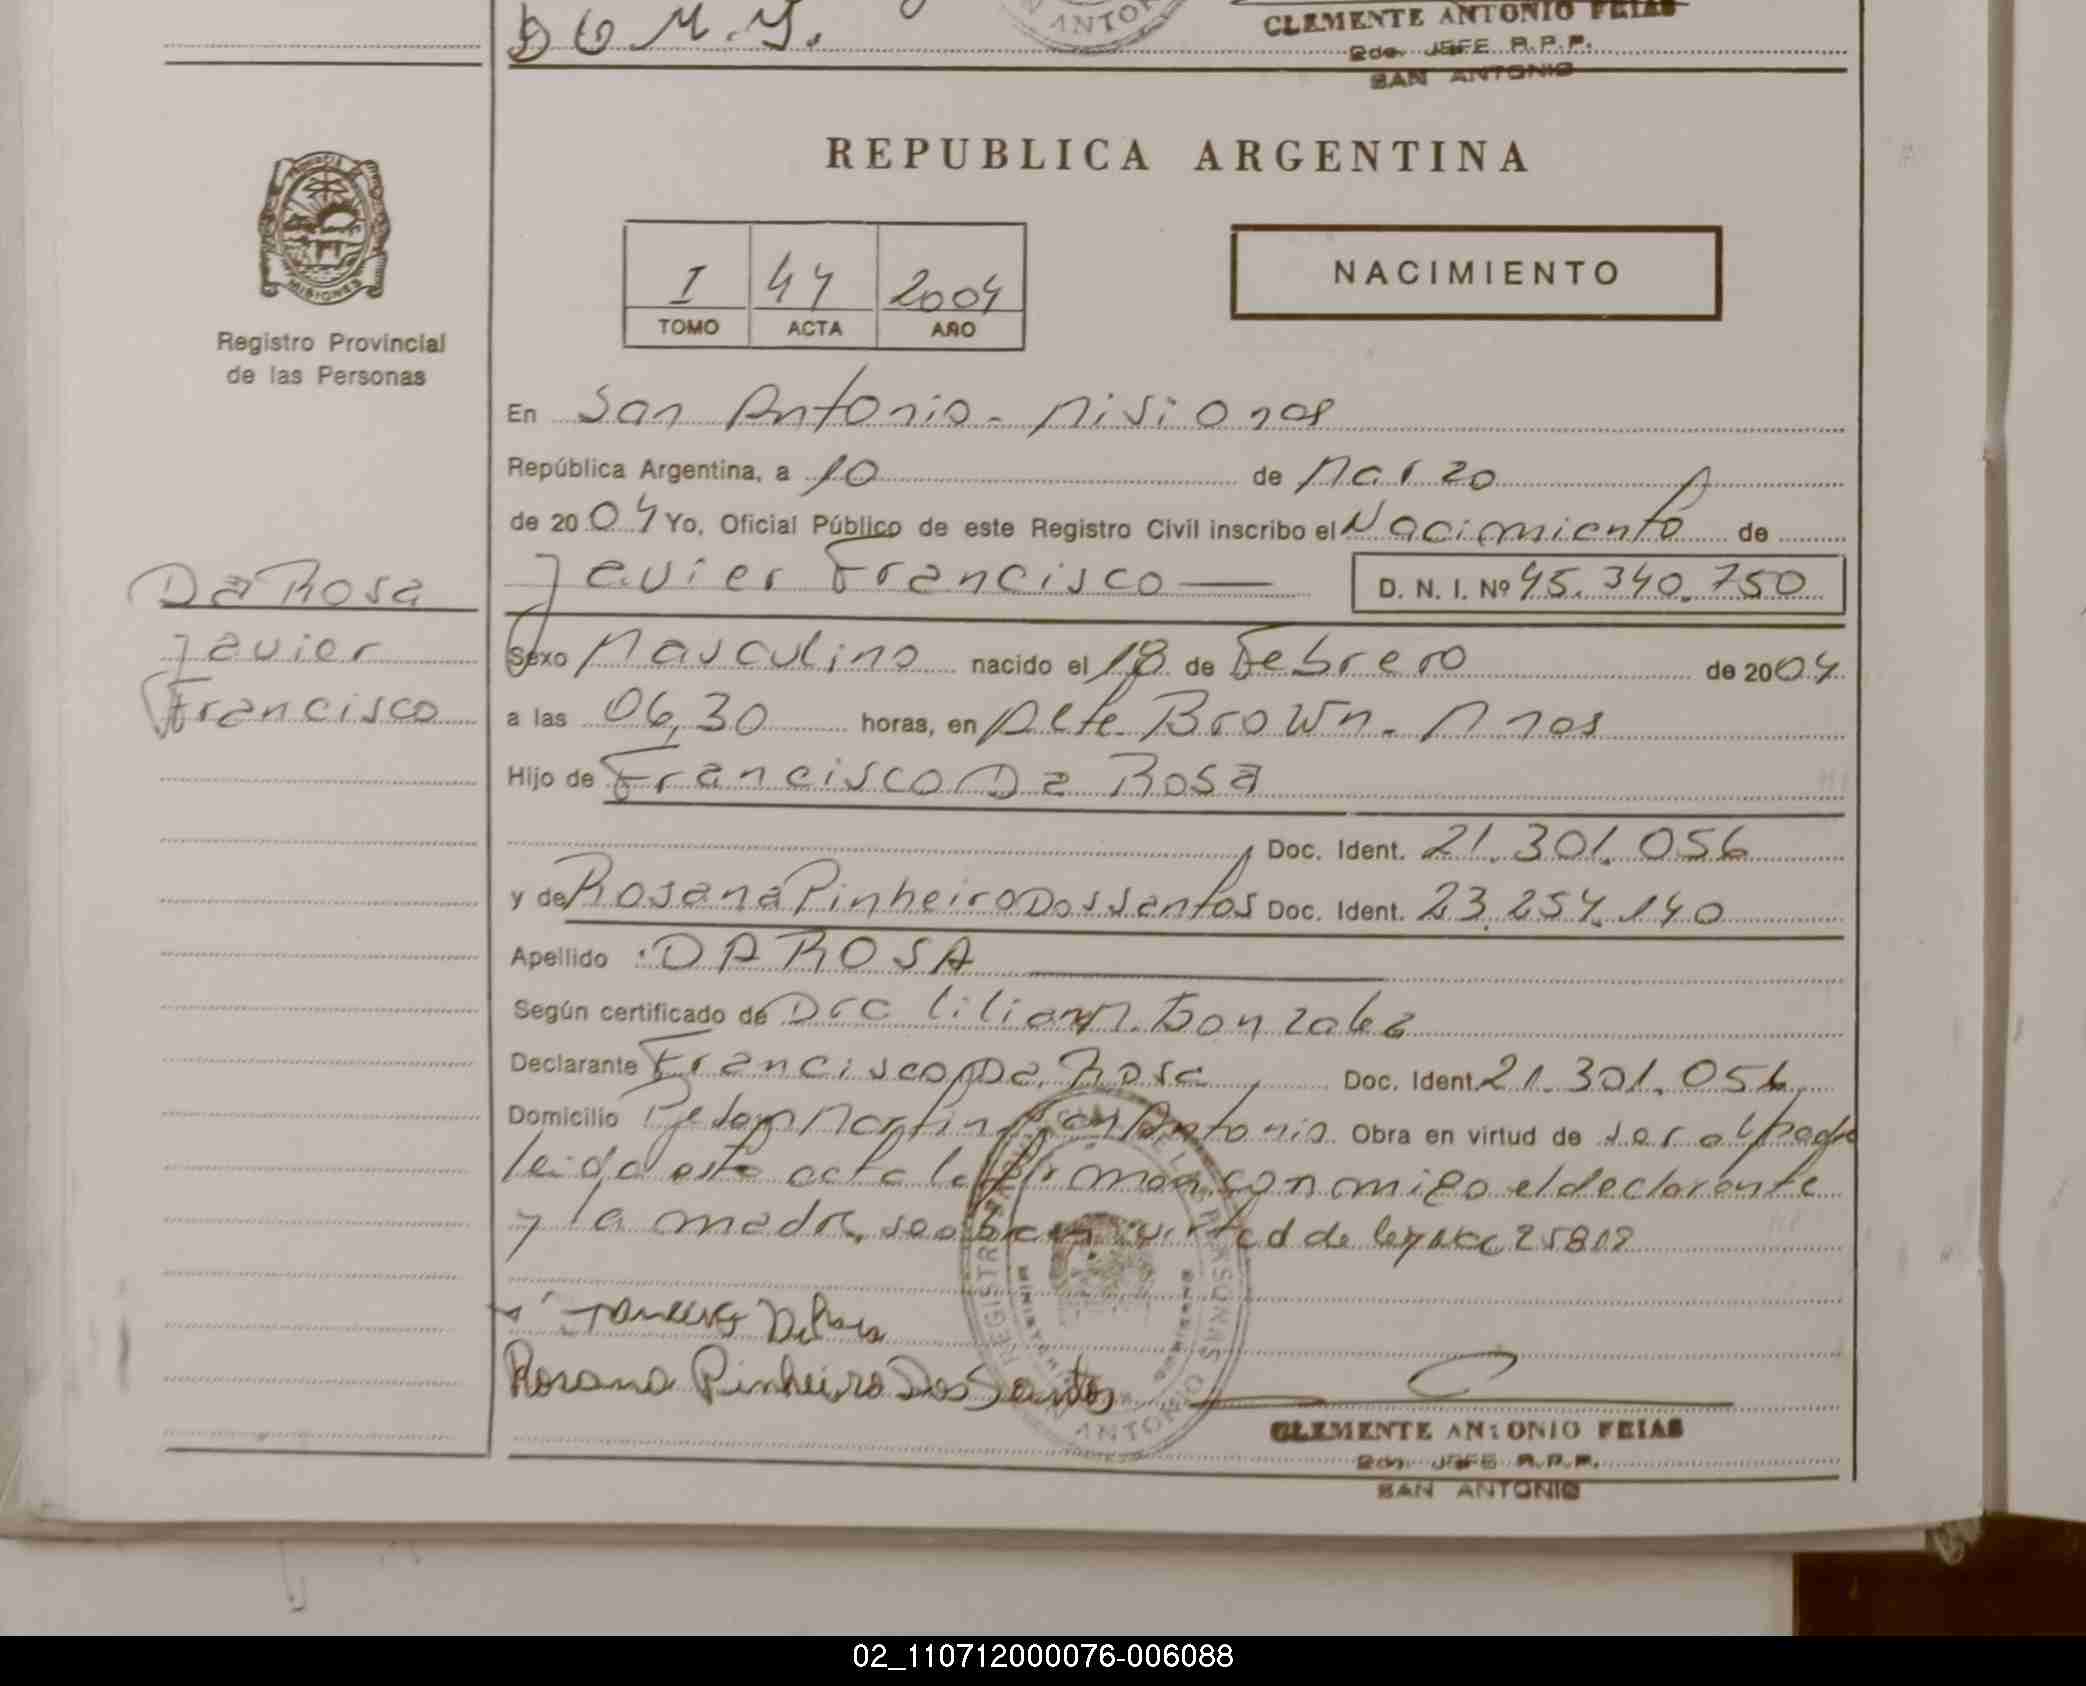 D U M. Y.
CLEMENTE ANTONIO FRIAS
2do. JEFE R.P.P.
SAN ANTONIO
REPUBLICA ARGENTINA
I 44 2004
TOMO ACTA AÑO
NACIMIENTO
MISIONES
Registro Provincial
de las Personas
En San Antonio - Misiones
República Argentina, a 10 de Marzo
de 2004 Yo, Oficial Público de este Registro Civil inscribo el Nacimiento de
Javier Francisco D. N. I. Nº 45.340.750
Da Rosa
Javier
Francisco
Sexo Masculino nacido el 18 de Febrero de 2004
a las 06,30 horas, en Alte. Brown - Mnes
Hijo de Francisco Da Rosa
Doc. Ident. 21.301.056
y de Rosana Pinheiro Dos Santos Doc. Ident. 23.254.140
Apellido : DA ROSA
Según certificado de Dra Lilian Gonzalez
Declarante Francisco Da Rosa Doc. Ident. 21.301.056
Domicilio Martin San Antonio Obra en virtud de ser el padre
leida esta acta la firman conmigo el declarante
y la madre, se obra en virtud de ley nac 25818
Francisco Da Rosa
Rosana Pinheiro Dos Santos
CLEMENTE ANTONIO FRIAS
2do. JEFE R.P.P.
SAN ANTONIO
02_110712000076-006088